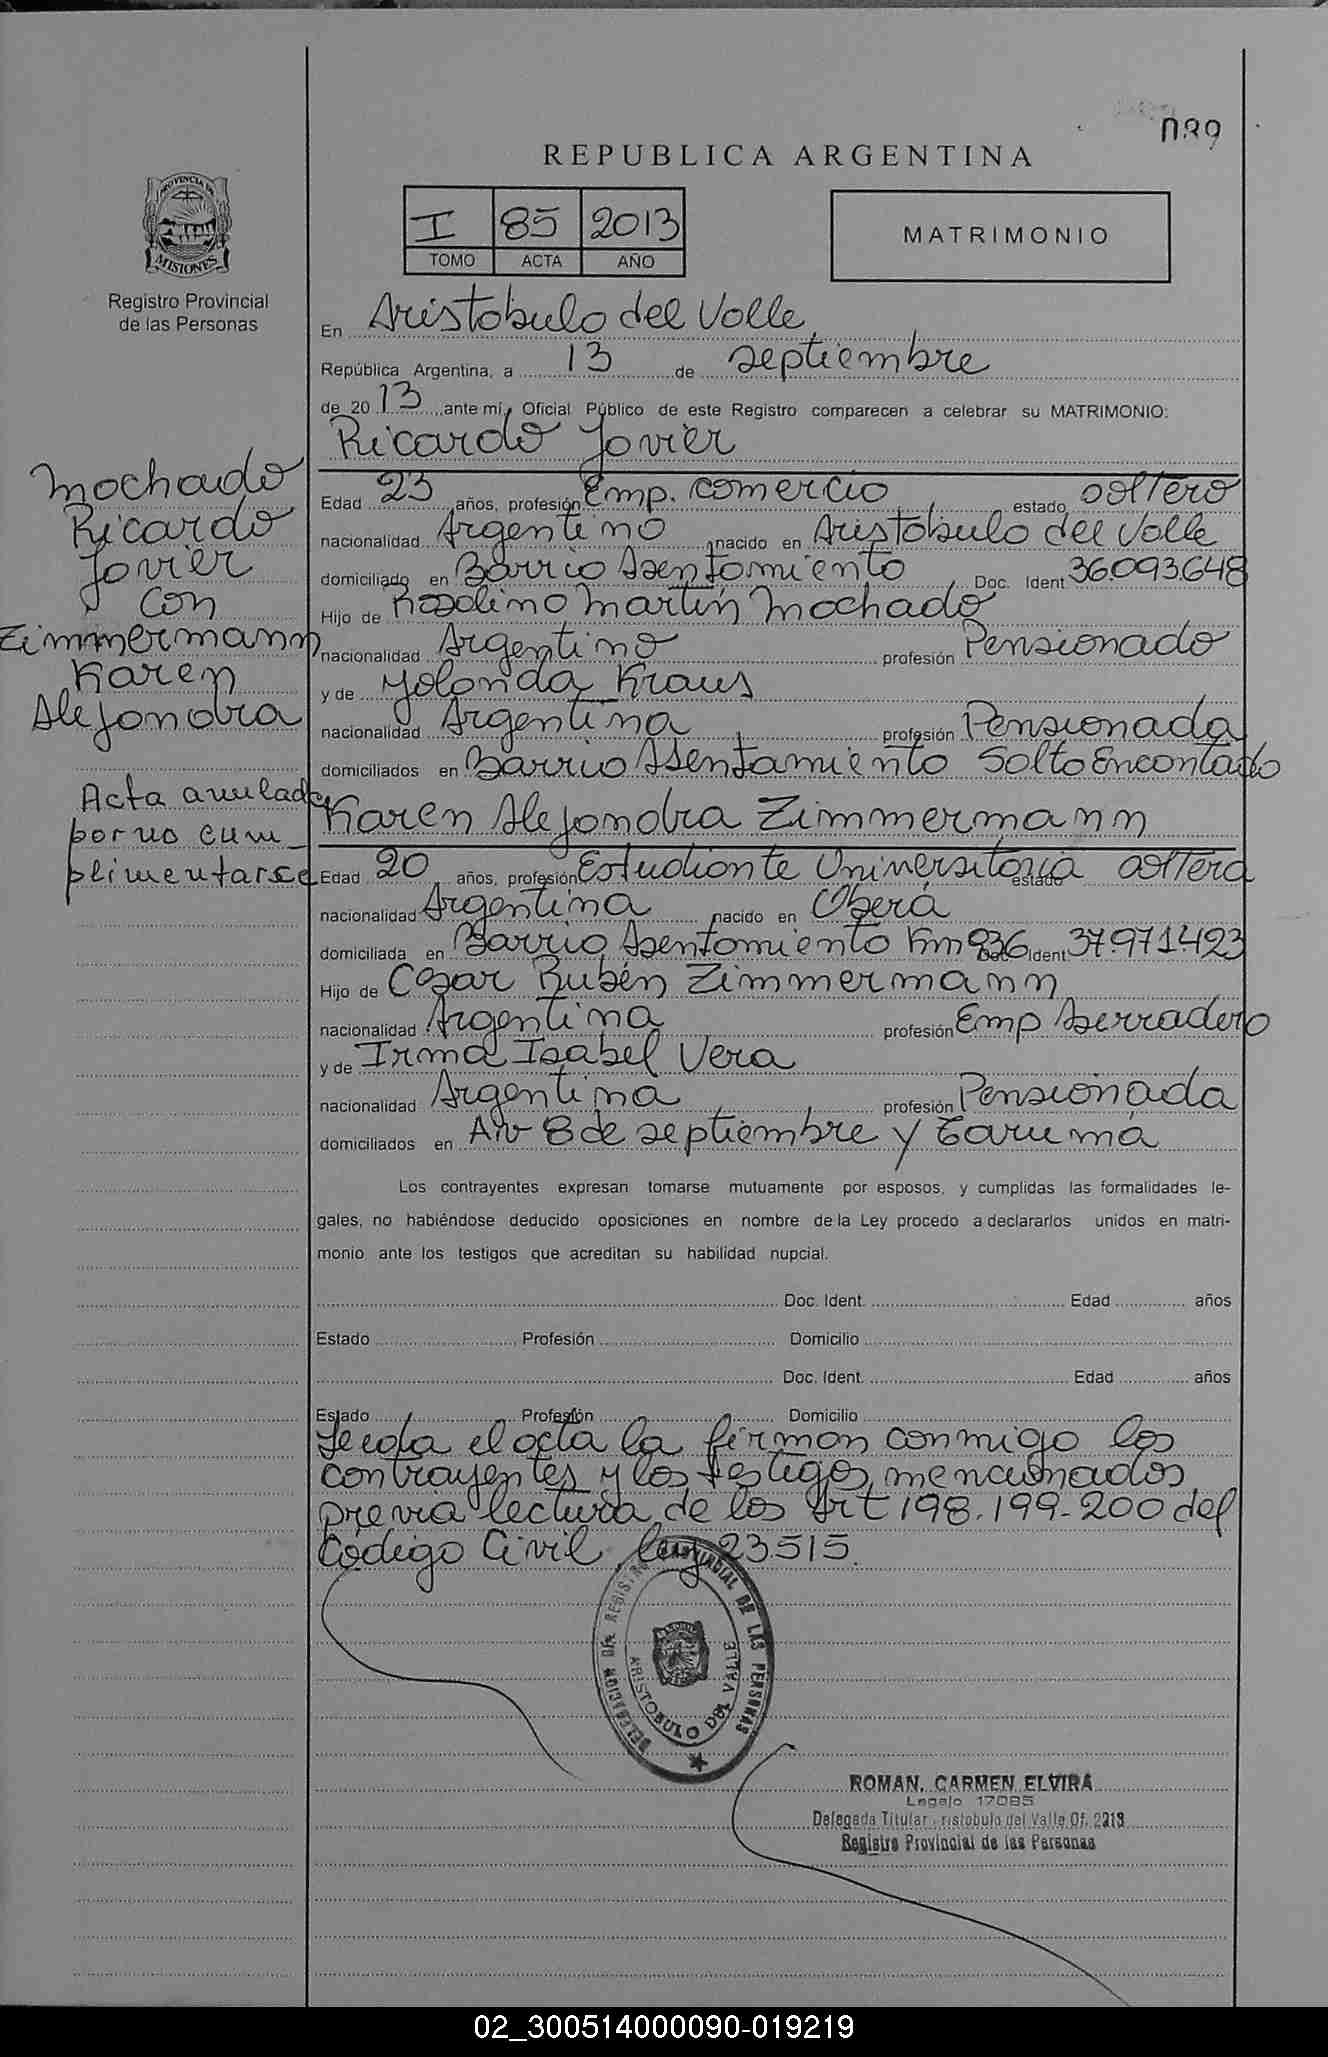 089
REPUBLICA ARGENTINA
I 85 2013
TOMO ACTA AÑO
MATRIMONIO
PROVINCIA DE
MISIONES
Registro Provincial
de las Personas
En Aristobulo del Valle
República Argentina, a 13 de septiembre
de 2013 ante mí, Oficial Público de este Registro comparecen a celebrar su MATRIMONIO:
Ricardo Javier
Machado
Ricardo
Javier
Con
Zimmermann
Karen
Alejandra
Acta anulada
por no cum_
plimentarse
Edad 23 años, profesión Emp. comercio estado soltero
nacionalidad Argentino nacido en Aristobulo del Valle
domiciliado en Barrio Asentamiento Doc. Ident 36.093.648
Hijo de Rosolino Martín Machado
nacionalidad Argentino profesión Pensionado
y de Yolanda Kraus
nacionalidad Argentina profesión Pensionada
domiciliados en Barrio Asentamiento Salto Encantado
Karen Alejandra Zimmermann
Edad 20 años, profesión Estudiante Universitaria estado soltera
nacionalidad Argentina nacido en Oberá
domiciliada en Barrio Asentamiento Km 936 Doc Ident 37.971.423
Hijo de Cesar Rubén Zimmermann
nacionalidad Argentina profesión Emp Aserradero
y de Irma Isabel Vera
nacionalidad Argentina profesión Pensionada
domiciliados en Av 8 de septiembre y Tarumá
Los contrayentes expresan tomarse mutuamente por esposos, y cumplidas las formalidades le-
gales, no habiéndose deducido oposiciones en nombre de la Ley procedo a declararlos unidos en matri-
monio ante los testigos que acreditan su habilidad nupcial.
Doc. Ident. Edad años
Estado Profesión Domicilio
Doc. Ident. Edad años
Estado Profesión Domicilio
Leida el acta la firman conmigo los
contrayentes y los testigos mencionados
previa lectura de los Art 198.199-200 del
Código Civil ley 23515.
DELEGACION DEL REGISTRO PROVINCIAL DE LAS PERSONAS
ARISTOBULO DEL VALLE
ROMAN, CARMEN ELVIRA
Legajo 17085
Delegada Titular ristobulo del Valle Of. 2213
Registro Provincial de las Personas
02_300514000090-019219